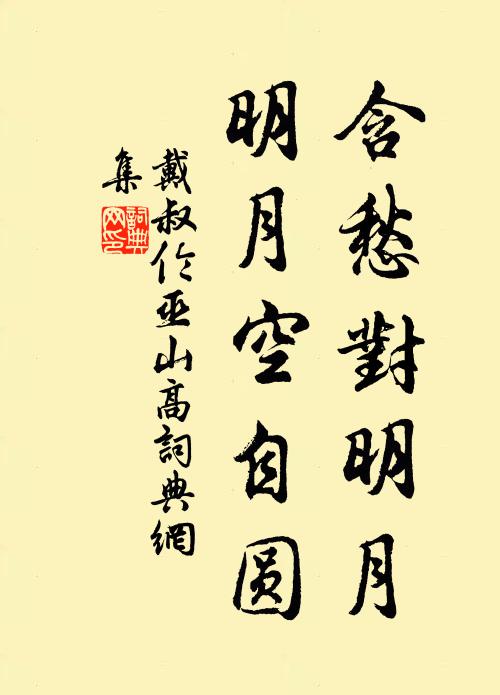 含愁對明月
明月空自圆
戴叔伦巫山高詞典網
集
詞典
网印